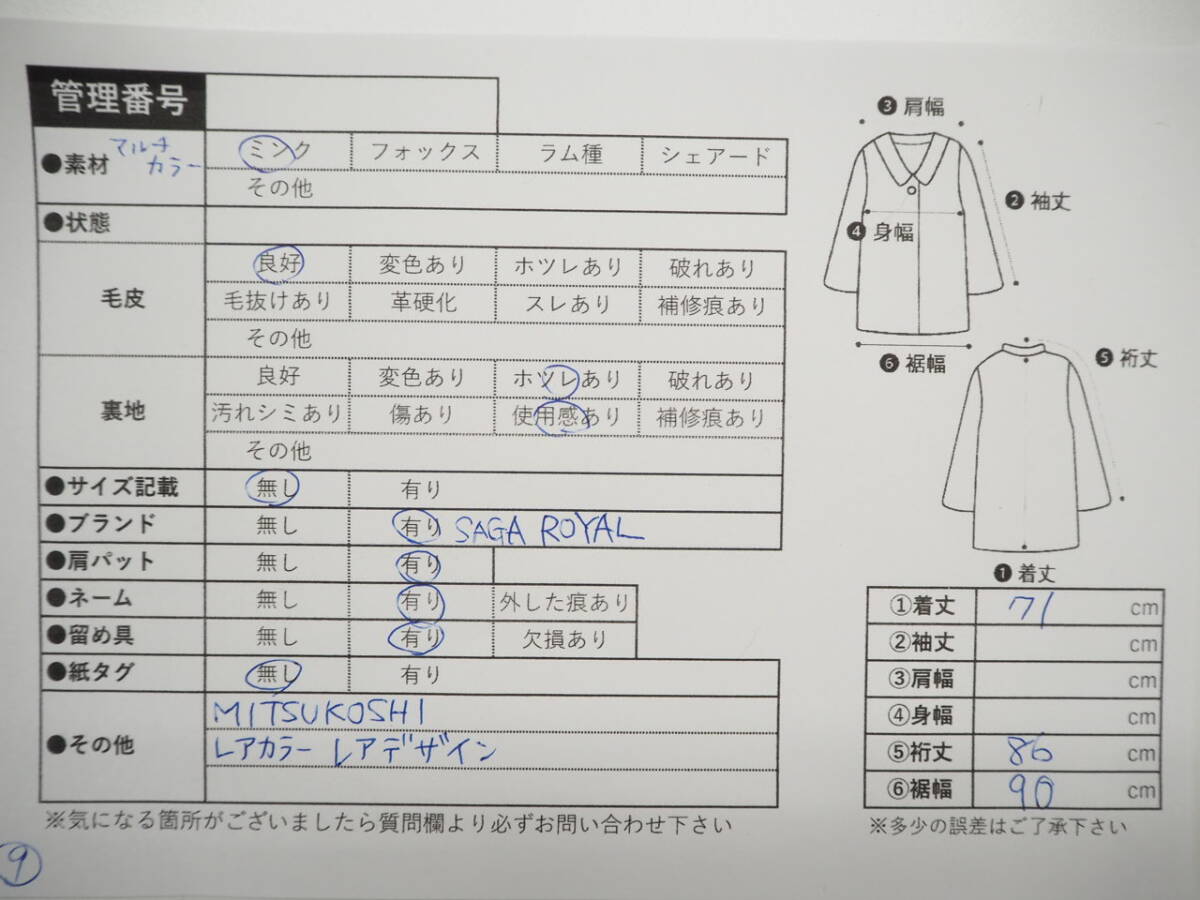 管理番号
●素材 マルチカラー ミンク フォックス ラム種 シェアード
その他
●状態
毛皮 良好 変色あり ホツレあり 破れあり
毛抜けあり 革硬化 スレあり 補修痕あり
その他
裏地 良好 変色あり ホツレあり 破れあり
汚れシミあり 傷あり 使用感あり 補修痕あり
その他
●サイズ記載 無し 有り
●ブランド 無し 有り SAGA ROYAL
●肩パット 無し 有り
●ネーム 無し 有り 外した痕あり
●留め具 無し 有り 欠損あり
●紙タグ 無し 有り
●その他 MITSUKOSHI
レアカラー レアデザイン
※気になる箇所がございましたら質問欄より必ずお問い合わせ下さい
⑨
❸ 肩幅
❷ 袖丈
❹ 身幅
❻ 裾幅
❺ 裄丈
❶ 着丈
①着丈 71 cm
②袖丈 cm
③肩幅 cm
④身幅 cm
⑤裄丈 86 cm
⑥裾幅 90 cm
※多少の誤差はご了承下さい